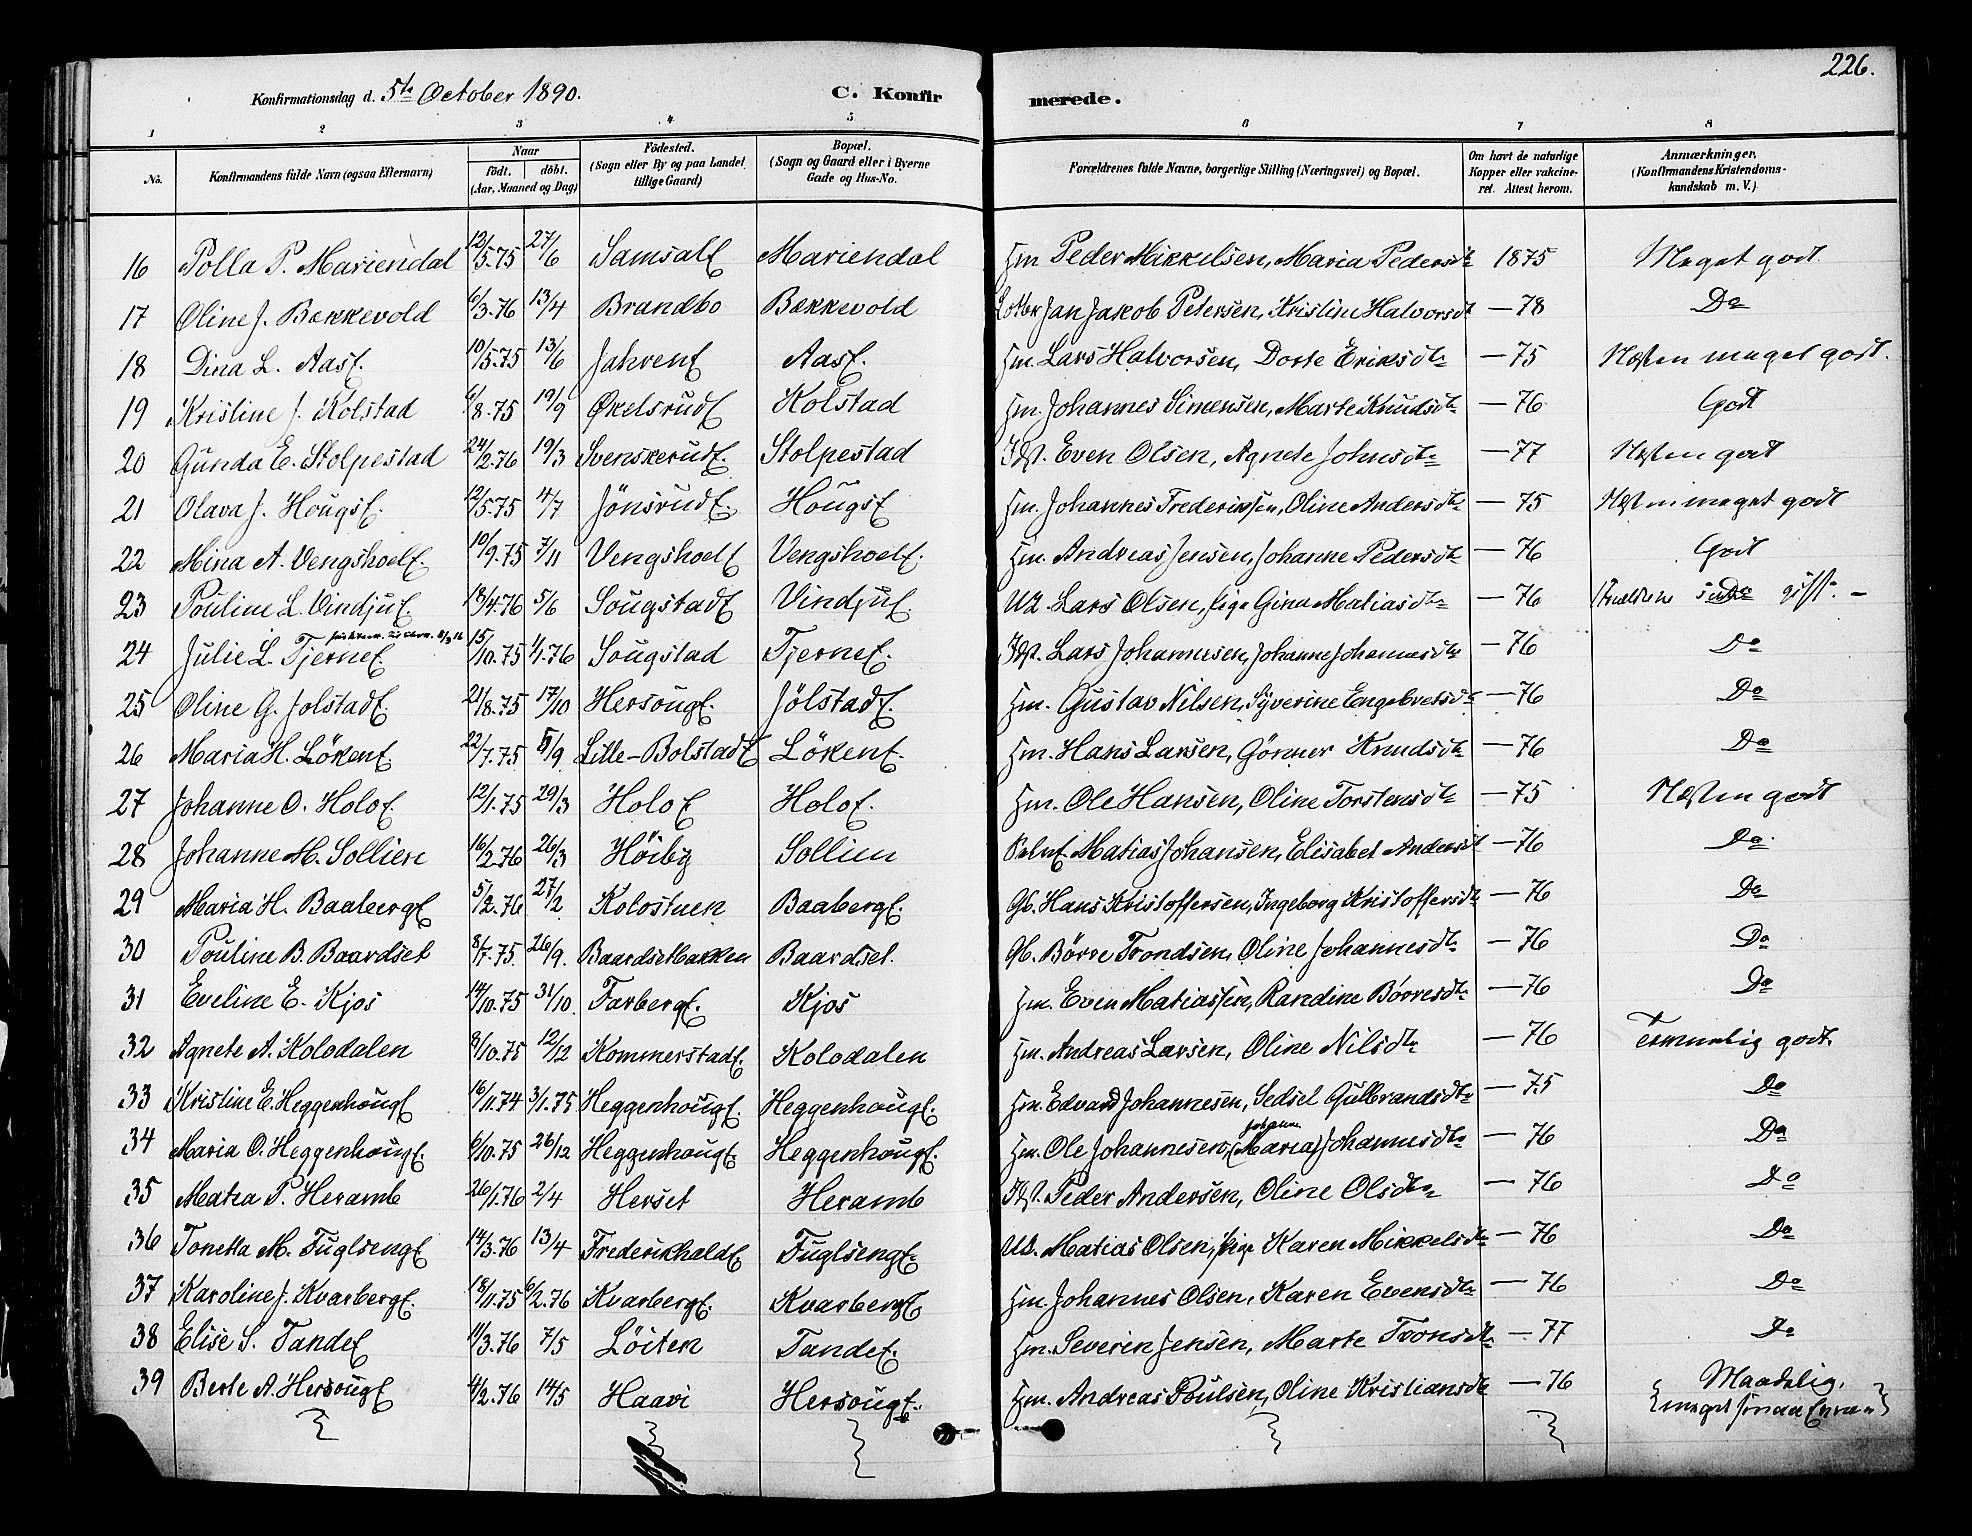 226.
Konfirmationsdag d. 5te October 1890. C. Konfirmerede.
1 2 3 4 5 6 7 8
No. Konfirmandens fulde Navn (ogsaa Efternavn) Naar födt. döbt. (Aar, Maaned og Dag) Födested. (Sogn eller By og paa Landet tillige Gaard) Bopæl. (Sogn og Gaard eller i Byerne Gade og Hus-No. Forældrenes fulde Navne, borgerlige Stilling (Næringsvei) og Bopæl. Om havt de naturlige Kopper eller vakcineret. Attest herom. Anmærkninger. (Konfirmandens Kristendomskundskab m. V.)
16 Polla P. Mariendal 12/5.75 27/6 SamsalE Mariendal Hm Peder Mikkelsen, Maria Pedersdtr 1875 Meget godt
17 Oline J. Bakkevold 6/3.76 13/4 Brandbo Bakkevold Jan Jakob Petersen, Kristine Halvorsdt — 78 Do
18 Dina L. AasE. 10/5.75 13/6 JahrenE AasE. Hm. Lars Halvorsen, Dorte Eriksdtr — 75 Næsten meget godt.
19 Kristine J. Kolstad 6/8.75 19/9 ØkelsrudE Kolstad Hm. Johannes Simensen, Marte Knudsdtr — 76 Godt
20 Gunda E. Stolpestad 24/2.76 19/3 SvenskerudE. Stolpestad Even Olsen, Agnete Johnsdtr — 77 Næsten godt
21 Olava J. HougsE. 12/5.75 4/7 JönsrudE. HougsE Hm. Johannes Frederiksen, Oline Andersdtr — 75 Næsten meget godt
22 Mina A. VengshoelE. 10/9.75 7/11 VengshoelE VengshoelE. Hm. Andreas Jensen, Johanne Pedersdtr — 76 Godt
23 Pouline L. VindjuE. 18/4.76 5/6 SougstadE VindjuE. Lars Olsen, pige Gina Matiasdtr — 76 gift. —
24 Julie L. TjerneE. 15/10.75 1/1.76 Sougstad TjerneE. Lars Johannesen, Johanne Johannesdtr — 76 Do
25 Oline G. JolstadE. 21/8.75 17/10 HersougE. JölstadE. Hm. Gustav Nilsen, Syverine Engebretsdtr — 76 Do
26 Maria H. LökenE. 22/7.75 5/9 Lille-BolstadE LökenE. Hm. Hans Larsen, Görner Knudsdtr — 76 Do
27 Johanne O. HoloE. 12/1.75 29/3 HoloE HoloE. Hm. Ole Hansen, Oline Torstensdtr — 75 Næsten godt
28 Johanne M. Sollien 16/2.76 26/3 Höiby Sollien Matias Johansen, Elisabet Andersdt — 76 Do
29 Maria H. BaabergE 5/2.76 27/2 Kolostuen BaabergE. Gb. Hans Kristoffersen, Ingeborg Kristoffersdtr — 76 Do
30 Pouline B. Baardset 8/7.75. 26/9. Baardsetbakken Baardset. Gb. Börre Trondsen, Oline Johannesdtr — 76 Do
31 Eveline E. Kjos 14/10.75 31/10. FarbergE. Kjos Hm. Even Matiassen, Randine Börresdtr — 76 Do
32 Agnete A. Kolodalen 9/10.75 12/12 KommerstadE. Kolodalen Hm. Andreas Larsen, Oline Nilsdtr — 76 Temmelig godt.
33 Kristine E. HeggenhougE 16/11.74 3/1.75 HeggenhougE. HeggenhougE. Hm. Edvard Johannesen, Sedsel Gulbrandsdtr — 75 Do
34 Maria O. HeggenhougE. 6/10.75 26/12 HeggenhougE. HeggenhougE. Hm. Ole Johannesen, (Maria) Johannesdtr — 76 Do
35 Matea P. Heramb 26/1.76 2/4 Herset Heramb Peder Andersen, Oline Olsdtr — 76 Do
36 Tonetta M. FuglsengE 14/3.76 13/4 FrederikhaldE FuglsengE. Matias Olsen, pige Karen Mikkelsdtr — 76 Do
37 Karoline J. KvarbergE. 18/11.75 6/2.76 KvarbergE. KvarbergE Hm. Johannes Olsen, Karen Evensdtr — 76 Do
38 Elise S. TandeE 11/3.76 7/5 Löiten TandeE. Hm. Severin Jensen, Marte Tronsdtr — 77 Do
39 Berte A. HersougE 4/2.76 14/5 Haavi HersougE. Hm. Andreas Poulsen, Oline Kristiansdtr — 76 Maadelig. {meget smaa Evner}